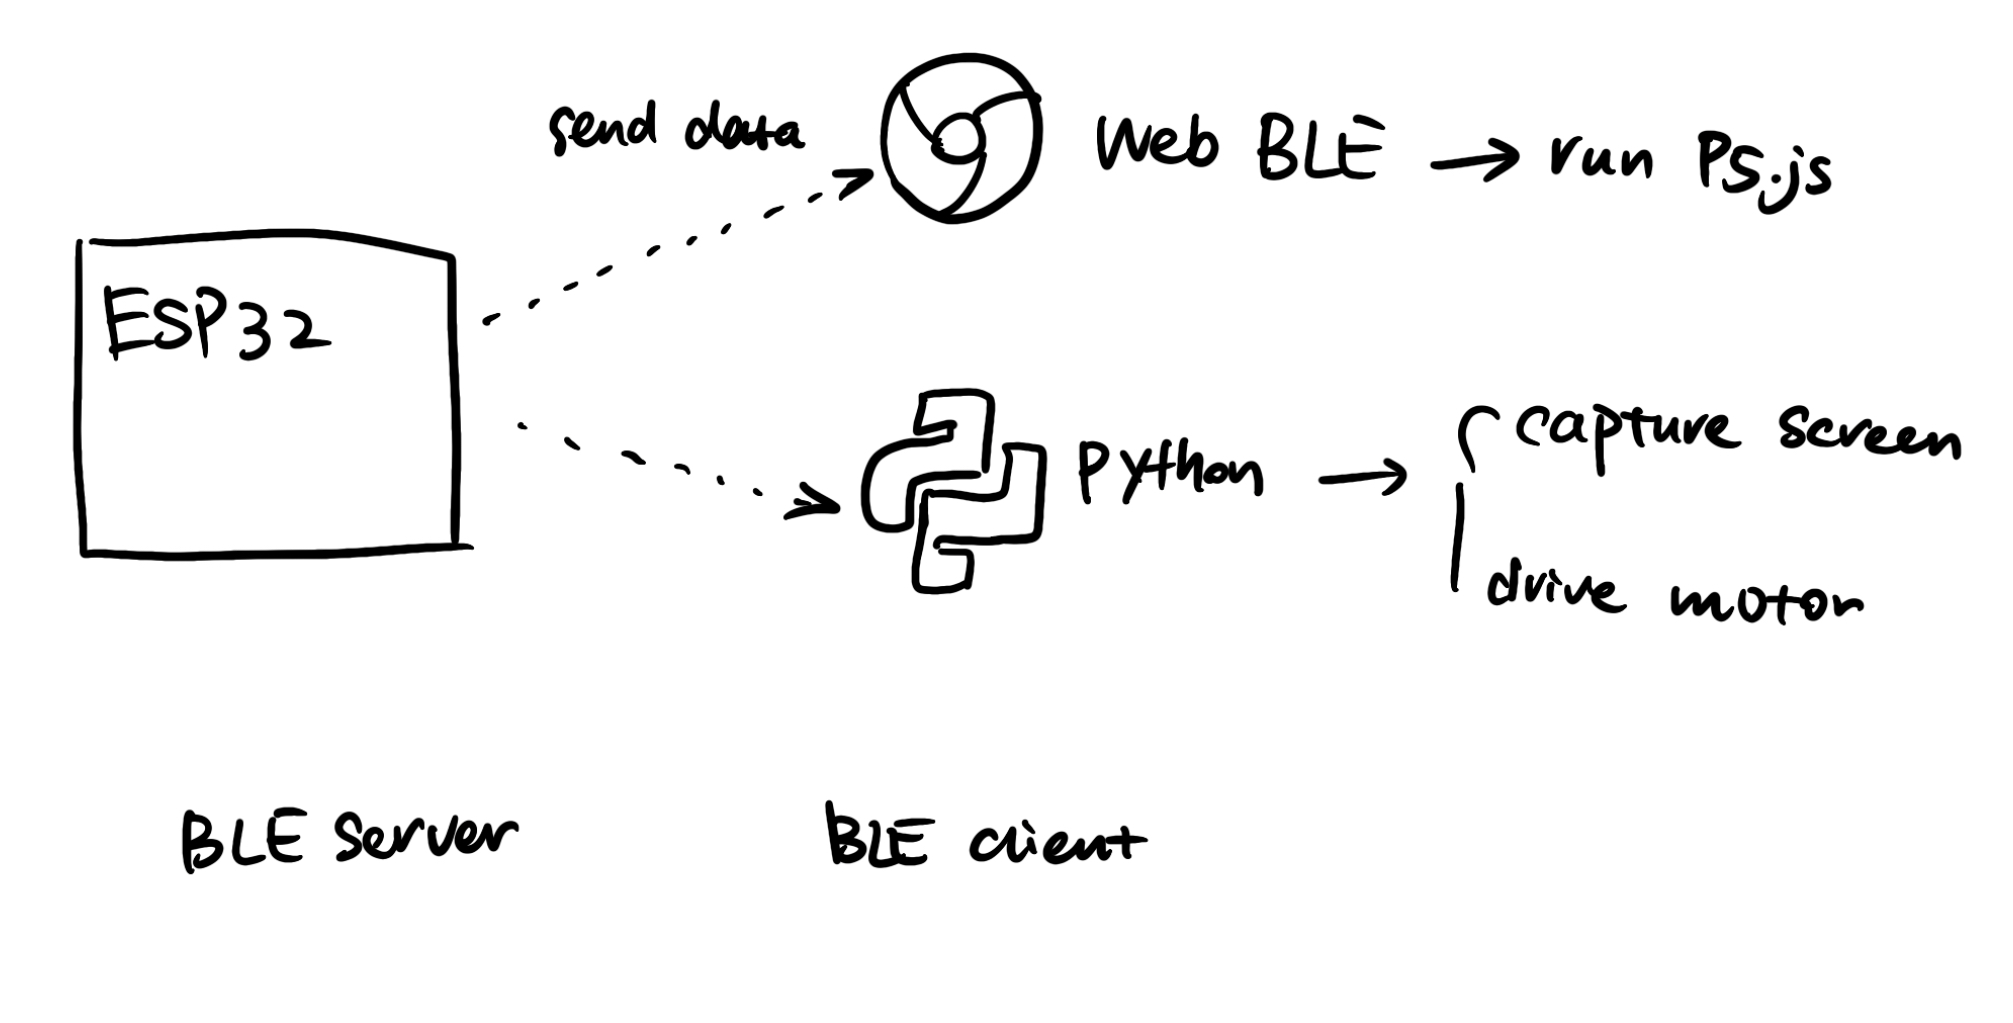 send data
Web BLE → run P5.js
ESP32
Python → capture screen
drive motor
BLE server
BLE client